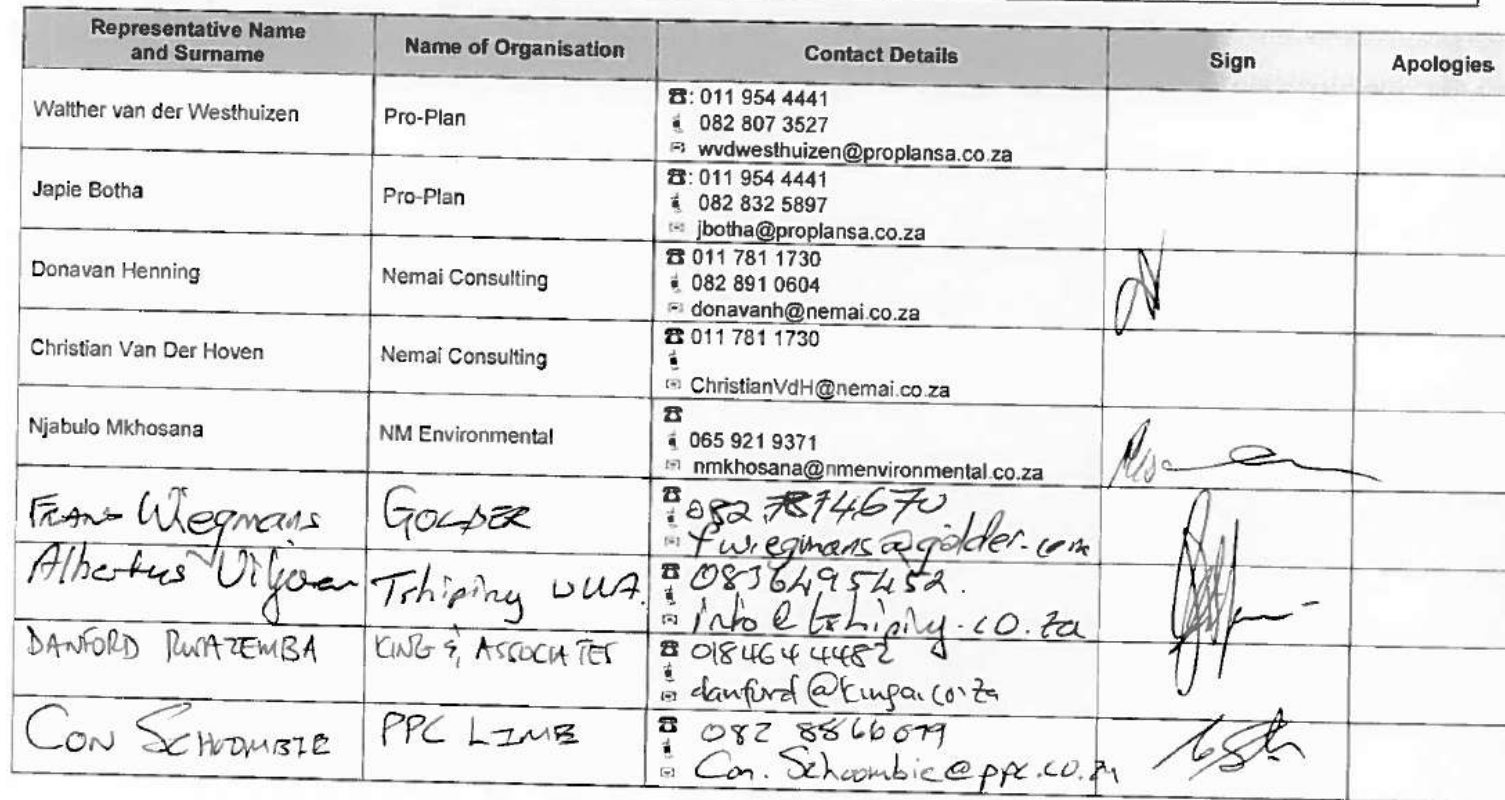 Representative Name and Surname Name of Organisation Contact Details Sign Apologies
Walther van der Westhuizen Pro-Plan : 011 954 4441
082 807 3527
wvdwesthuizen@proplansa.co.za
Japie Botha Pro-Plan : 011 954 4441
082 832 5897
jbotha@proplansa.co.za
Donavan Henning Nemai Consulting 011 781 1730
082 891 0604
donavanh@nemai.co.za
Christian Van Der Hoven Nemai Consulting 011 781 1730
ChristianVdH@nemai.co.za
Njabulo Mkhosana NM Environmental
065 921 9371
nmkhosana@nmenvironmental.co.za
Frans Wiegmans GOLDER
fwiegmans@golder.com
Albertus Viljoen Tshiping WUA. 0836495452.
info@tshiping.co.za
DANFORD KING & ASSOCIATES 0184644482
danford@kingai.co.za
CON SCHOOMBIE PPC LIME 082 8866079
Con.Schoombie@ppc.co.za